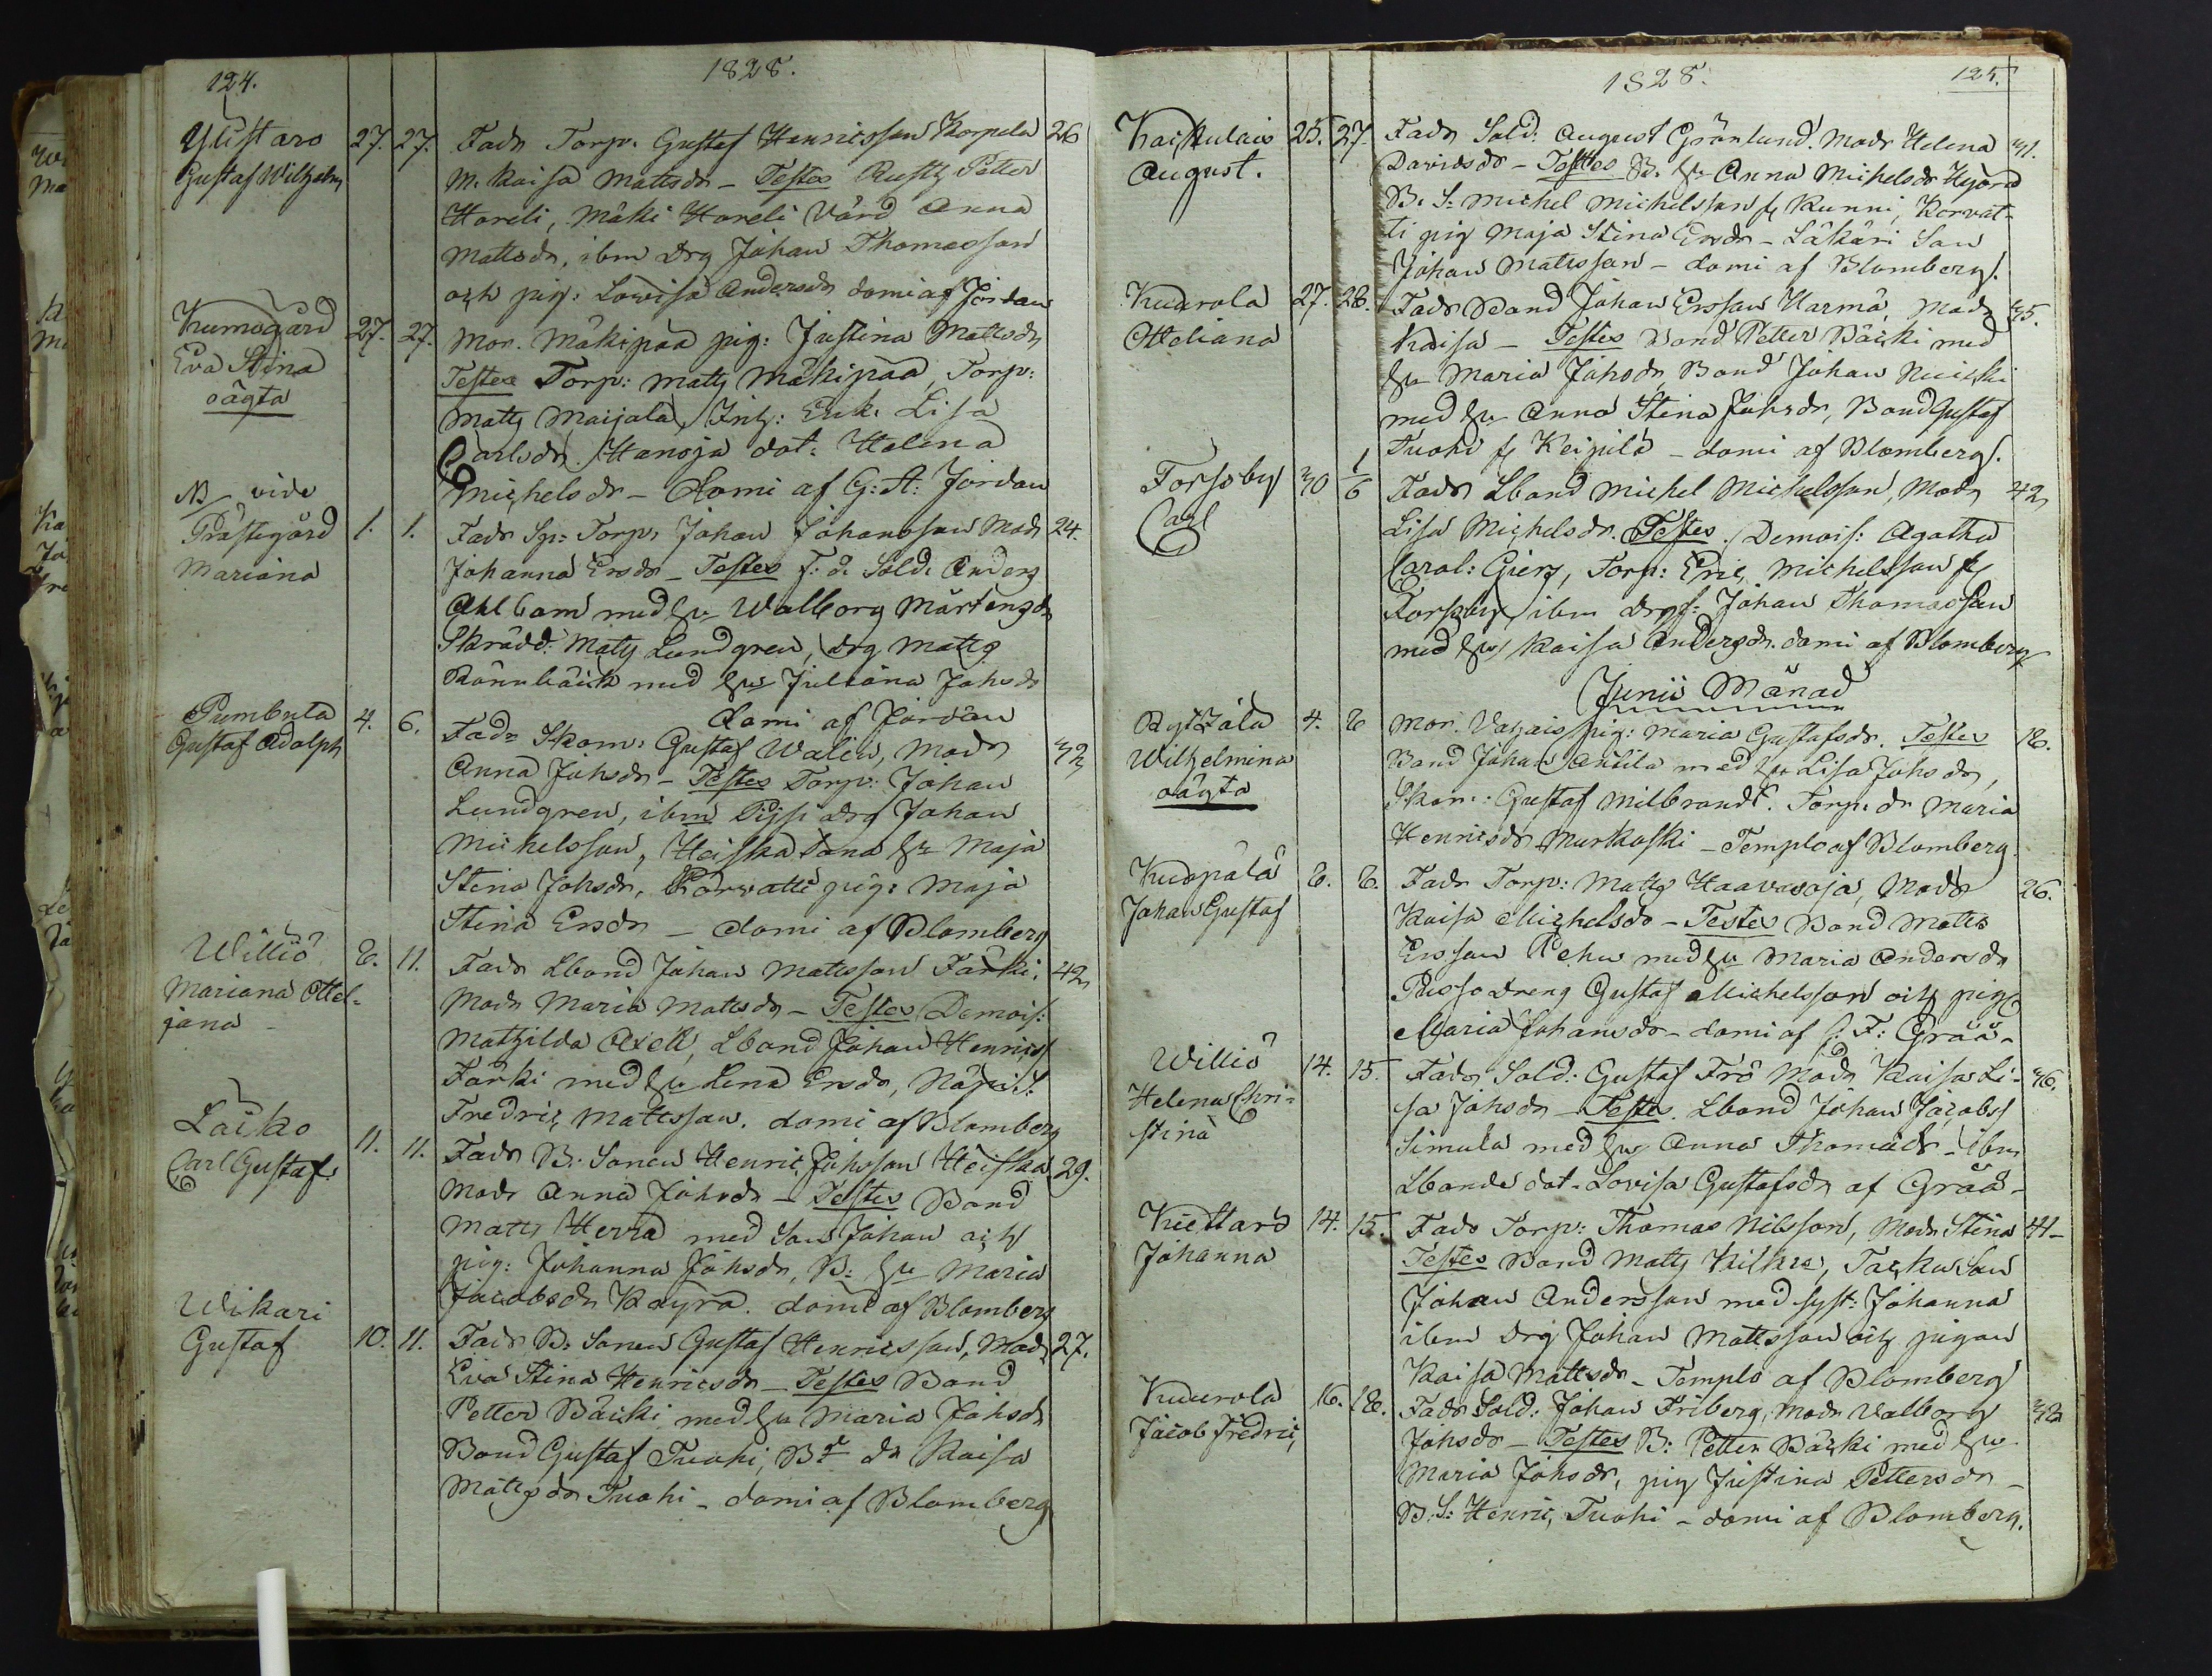 124.
1828.
Ylistaro 27. 27. Fadr Torp. Gustaf Henricsson Korpela 26
Gustaf Wilhelm
M. Kaisa Mattsdr – Testes Rustg Petter
Hareli, Mäki Hareli Värd Anna
Mattsdr, ibm Drg Johan Thomasson
och pig: Lovisa Andersdr domi af Jordan
Kumogård 27. 27. Mor. Mäkipää pig: Justina Mattsdr
Eva Stina
oägta
Testes Torp: Matts Mäkipää, Torp:
Matts Maijala, Inh: Enk. Lisa
Carlsdr. Hanoja dot: Helena
Michelsdr – Domi af G: A: Jordan
NB vide
Prästegård 1. 1. Fadr Sp: Torp: Johan Johansson Modr 24.
Mariana
Johanna Ersdr – Testes F. d. Sold. Anders
Ahlbom med hu Walborg Mårtensdr
Skrädd: Matts Lundgren, Drg Matts
Rönnbäck med hu Juliana Johsdr
domi af Jordan
Pumbula 4. 6. Fadr Skom: Gustaf Walin, Modr 32
Gustaf Adolph
Anna Johsdr – Testes Torp: Johan
Lundgren, ibm Drg Johan
Michelsson, Heiska hu Maja
Stina Johsdr, Korvatti pig: Maja
Stina Ersdr – domi af Blomberg
Williö 8. 11. Fadr Lbond Johan Mattsson Färki. 42
Mariana Ottel-
jana –
Modr Maria Mattsdr – Testes Demois:
Mathilda Axell, Lbond Johan Henrics
Färki med hu Lena Ersdr, S.
Fredric Mattsson. domi af Blomberg
Laiko 11. 11. Fadr B. Sonen Henric Johsson Heiska 29.
Carl Gustaf.
Modr Anna Johsdr – Testes Bond
Matts Herra med Son Johan och
pig: Johanna Johsdr, B: hu Maria
Jacobsdr Kayra. domi af Blomberg
Wikari
Gustaf 10. 11. Fadr B. Sonen Gustaf Henricsson, Modr 27.
Eva Stina Henricsdr – Testes Bond
Petter Bäcki med hu Maria Johsdr
Bond Gustaf Tuohi, Bde dr Kaisa
Mattsdr Tuohi – domi af Blomberg
1828.
125.
Kaiskulais 25. 27. Fadr Sold. August Grönlund. Modr Helena 31.
August.
Davidsdr – Testes B. hu Anna Michelsdr Hyörä
B. S: Michel Michelsson fr Kunni, Korvat-
ti pig Maja Stina Ersdr – Läkäri Son
Johan Mattsson – domi af Blomberg.
Kuurola 27. 28. Fadr Bond Johan Ersson Harmä, Modr 35.
Otteliana
Kaisa – Testes Bond Petter Bäcki med
hu Maria Johsdr, Bond Johan
med hu Anna Stina Johsdr, Bond Gustaf
Tuohi fr Keipilä – domi af Blomberg.
Forssby 30 1/6 Fadr Lbond Michel Michelsson, Modr 42
Carl
Lisa Michelsdr. Testes. Demois: Agatha
Carol: Giers, Torp: Eric Michelsson fr
Forssby ibm Drg: Johan Thomasson
med hu Kaisa Andersdr. domi af Blomberg
Junii Månad
Rytzälä 4. 8 Mor. pig: Maria Gustafsdr. Testes 18.
Wilhelmina
oägta
Bond Johan Anttila med hu Lisa Johsdr,
Skom: Gustaf Milbrandt. Torp. dr Maria
Henricsdr Murkoski – Templo af Blomberg.
Kuopälä 8. 8. Fadr Torp: Matts Haavaoja, Modr 26.
Johan Gustaf
Kaisa Michelsdr – Testes Bond Matts
Ersson Pehu med hu Maria Andersdr
Russo Dreng Gustaf Michelsson och pig
Maria Johansdr – domi af F: Gråå –
Williö 14. 15. Fadr Sold: Gustaf Frö Modr Kaisa Li- 36.
Helena Chri-
stina
sa Johsdr – Testes Lbond Johan Jacobss
Simula med hu Anna Thomasdr – ibm
Lbonde dot. Lovisa Gustafsdr af Gråå –
Kiettarö 14. 15. Fadr Torp: Thomas Nilsson, Modr Stina 44 –
Johanna
Testes Bond Matts Kilkis, Taska Son
Johan Andersson med syst: Johanna
ibm Drg Johan Mattsson och pigan
Kaisa Mattsdr – Templo af Blomberg
Kuurola 16. 18. Fadr Sold: Johan Friberg, Modr Valborg 32
Jacob Fredric
Johsdr – Testes B: Petter Bäcki med hu
Maria Johsdr, pig Justina Pettersdr –
B. S: Henric Tuohi – domi af Blomberg.